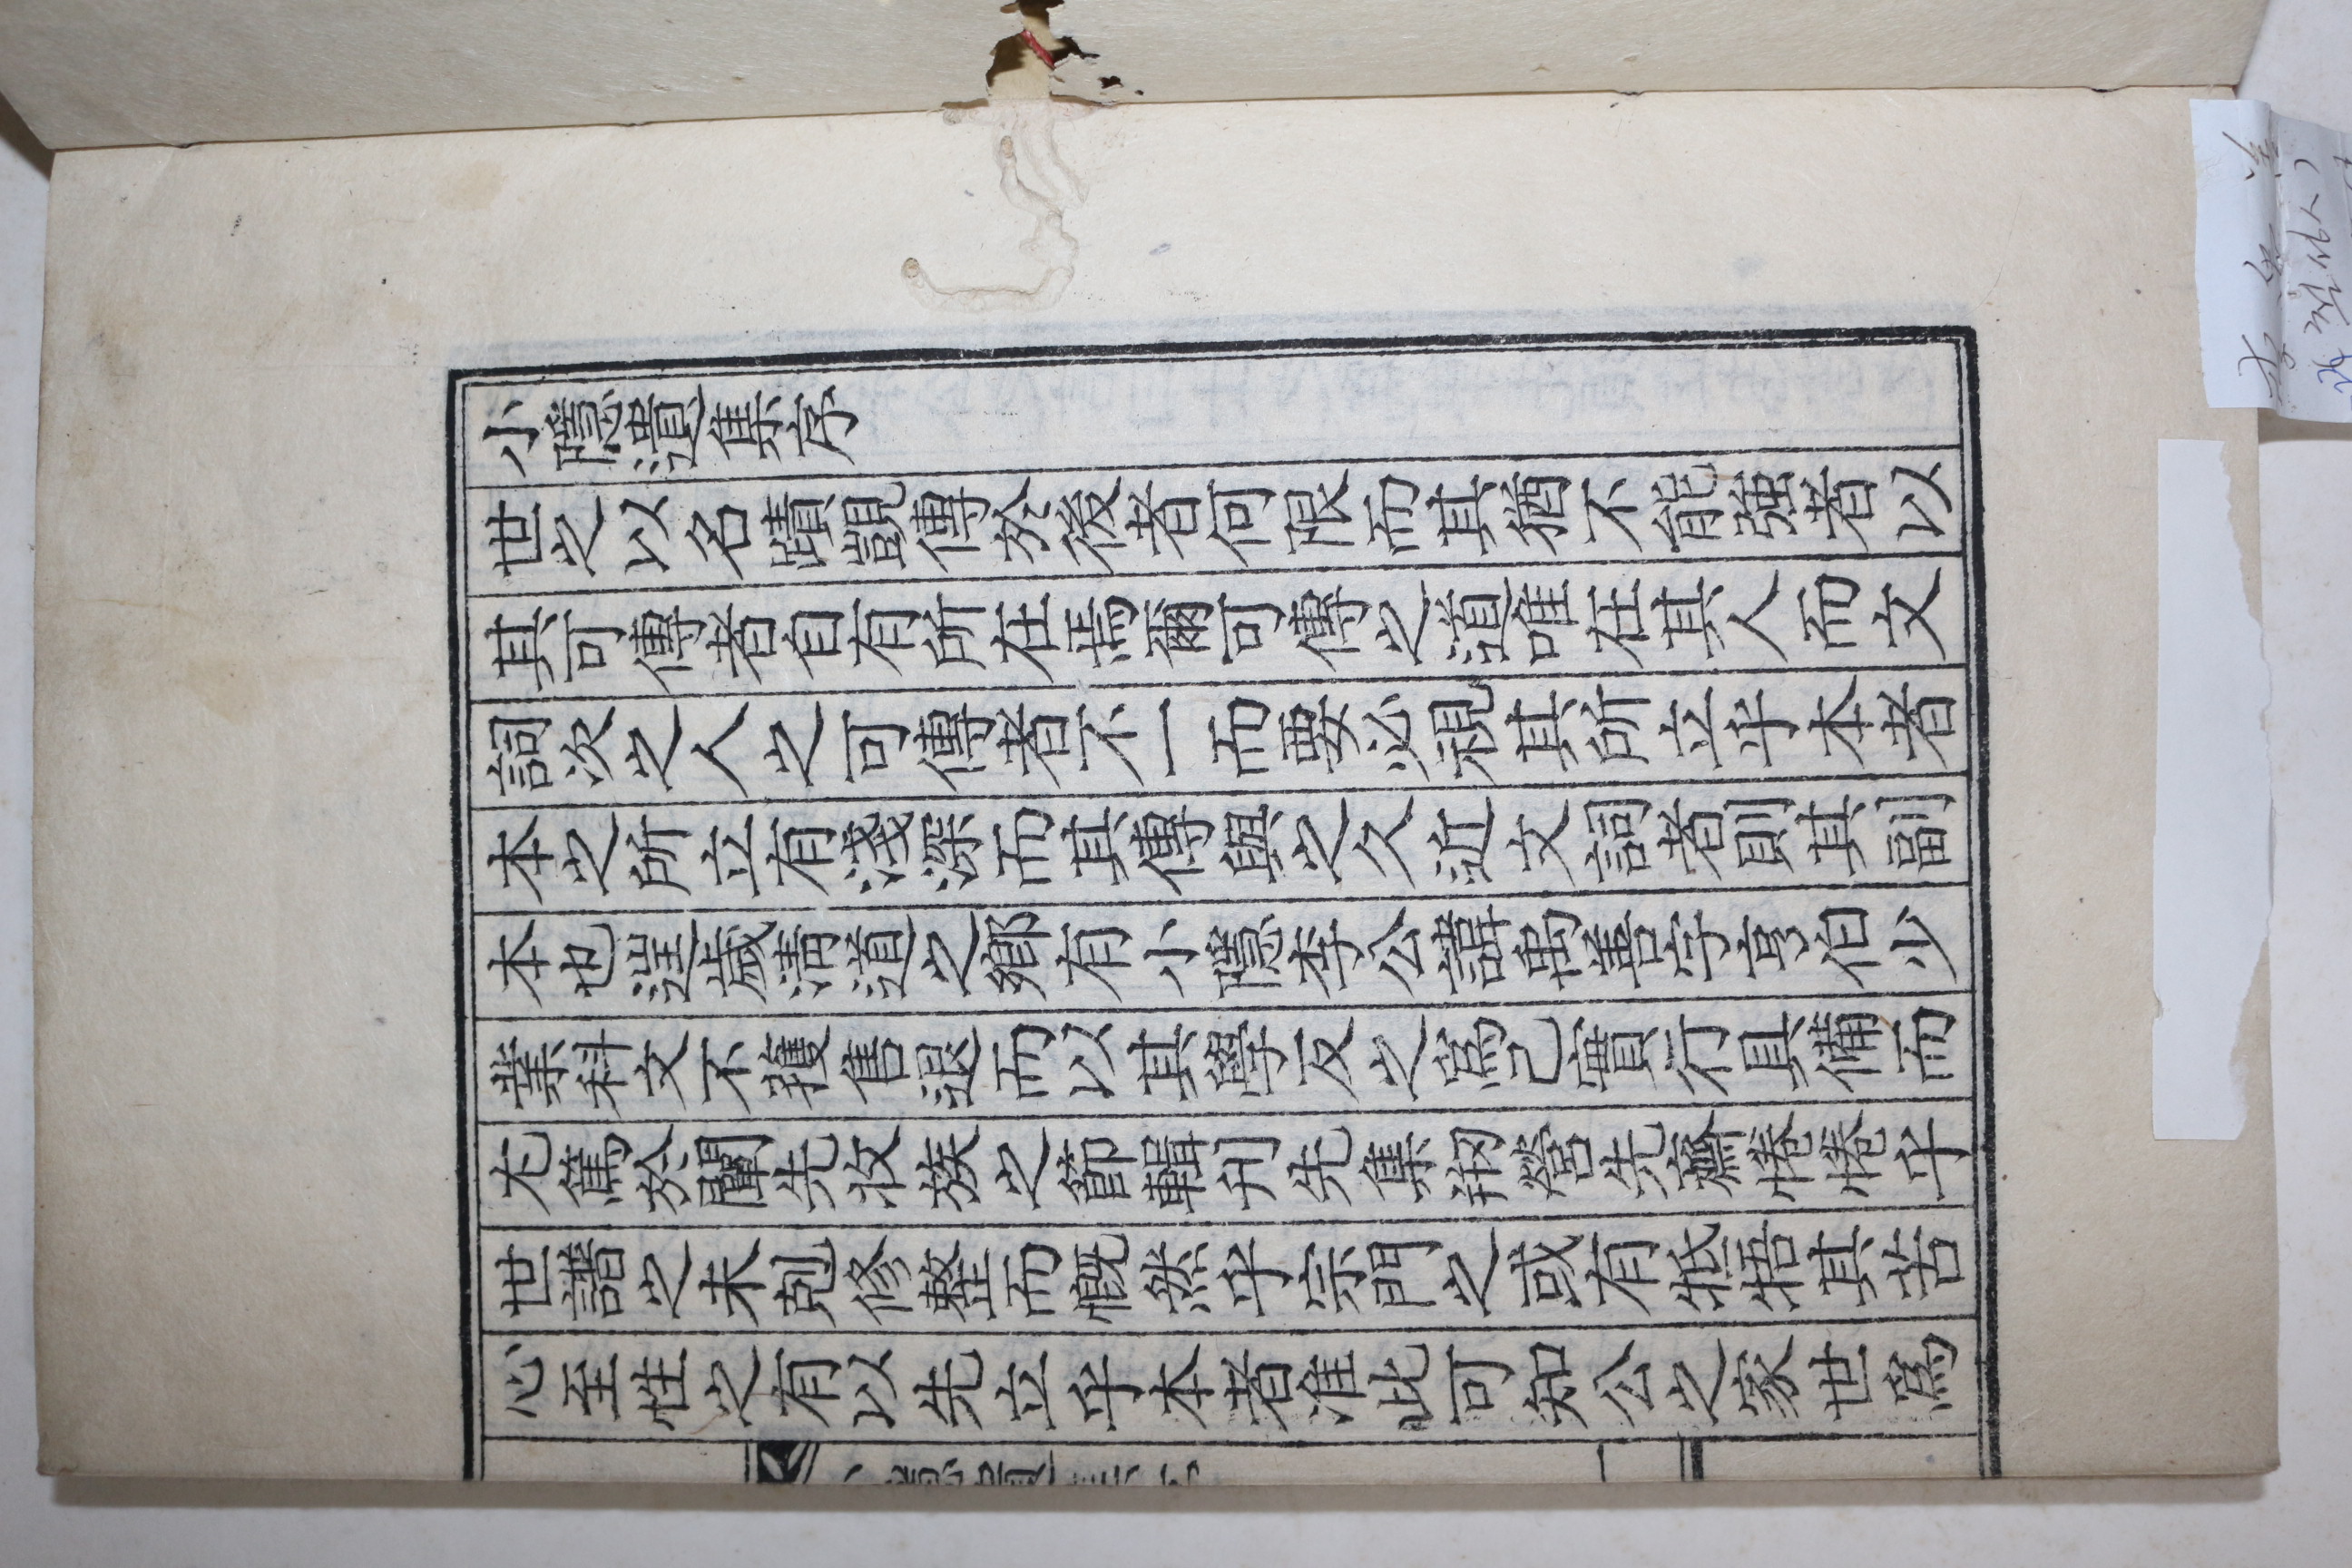 小隱遺集序
世之以名蹟覬傳於後者何限而其猶不能強者以
其可傳者自有所在焉爾可傳之道唯在其人而文
詞次之人之可傳者不一而要必視其所立乎本者
本之所立有淺深而其傳與之久近文詞者則其副
本也逞歲淸道之鄕有小隱李公諱禹善字亨伯少
業科文不獲售退而以其學反之爲己實行具備而
尤篤於闡先收族之節輯刊先集刱營先齋惓惓乎
世譜之未剋修整而慨然乎宗門之或有牴牾其苦
心至性之有以先立乎本者准此可知公之家世爲
小隱遺集序
一
李禹善